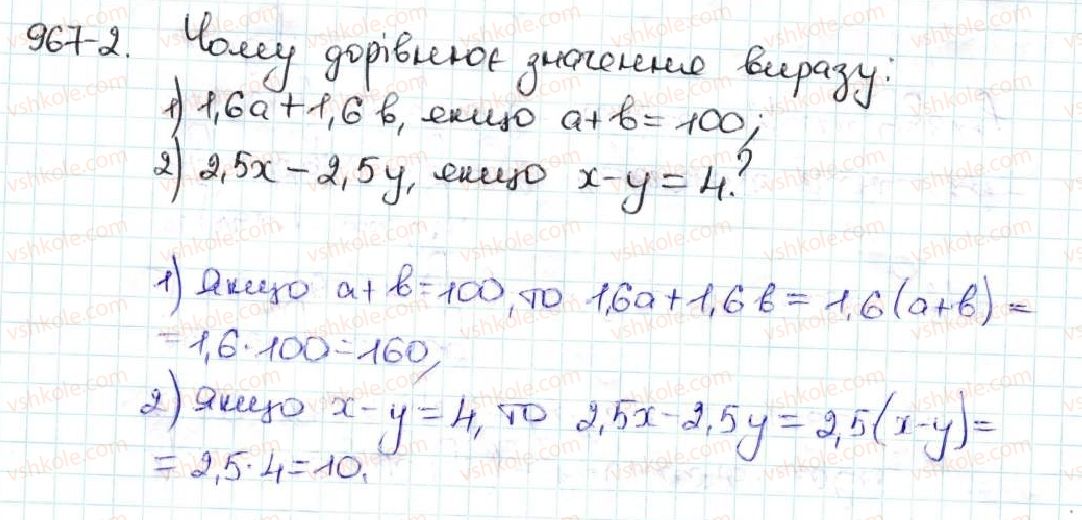 967-2. Чому дорівнює значення виразу:
1) 1,6a + 1,6 b, якщо a + b = 100;
2) 2,5x - 2,5y, якщо x - y = 4?
1) Якщо a + b = 100, то 1,6a + 1,6 b = 1,6 (a + b) =
= 1,6 · 100 = 160;
2) Якщо x - y = 4, то 2,5x - 2,5y = 2,5 (x - y) =
= 2,5 · 4 = 10.